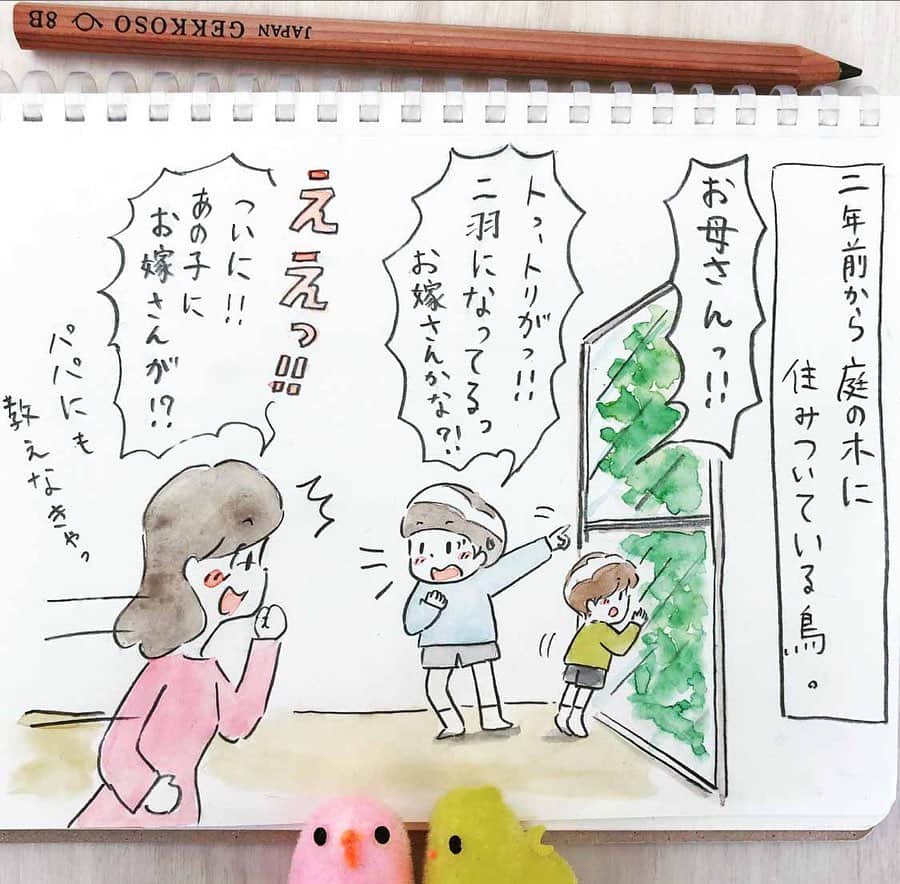 8B JAPAN GEKKOSO
二年前から庭の木に
住みついている鳥。
お母さんっ!!
トっ、トリがっ!!
二羽になってるっ
お嫁さんかな?!
ええっ!!
ついに!!
あの子に
お嫁さんが!?
パパにも
教えなきゃっ